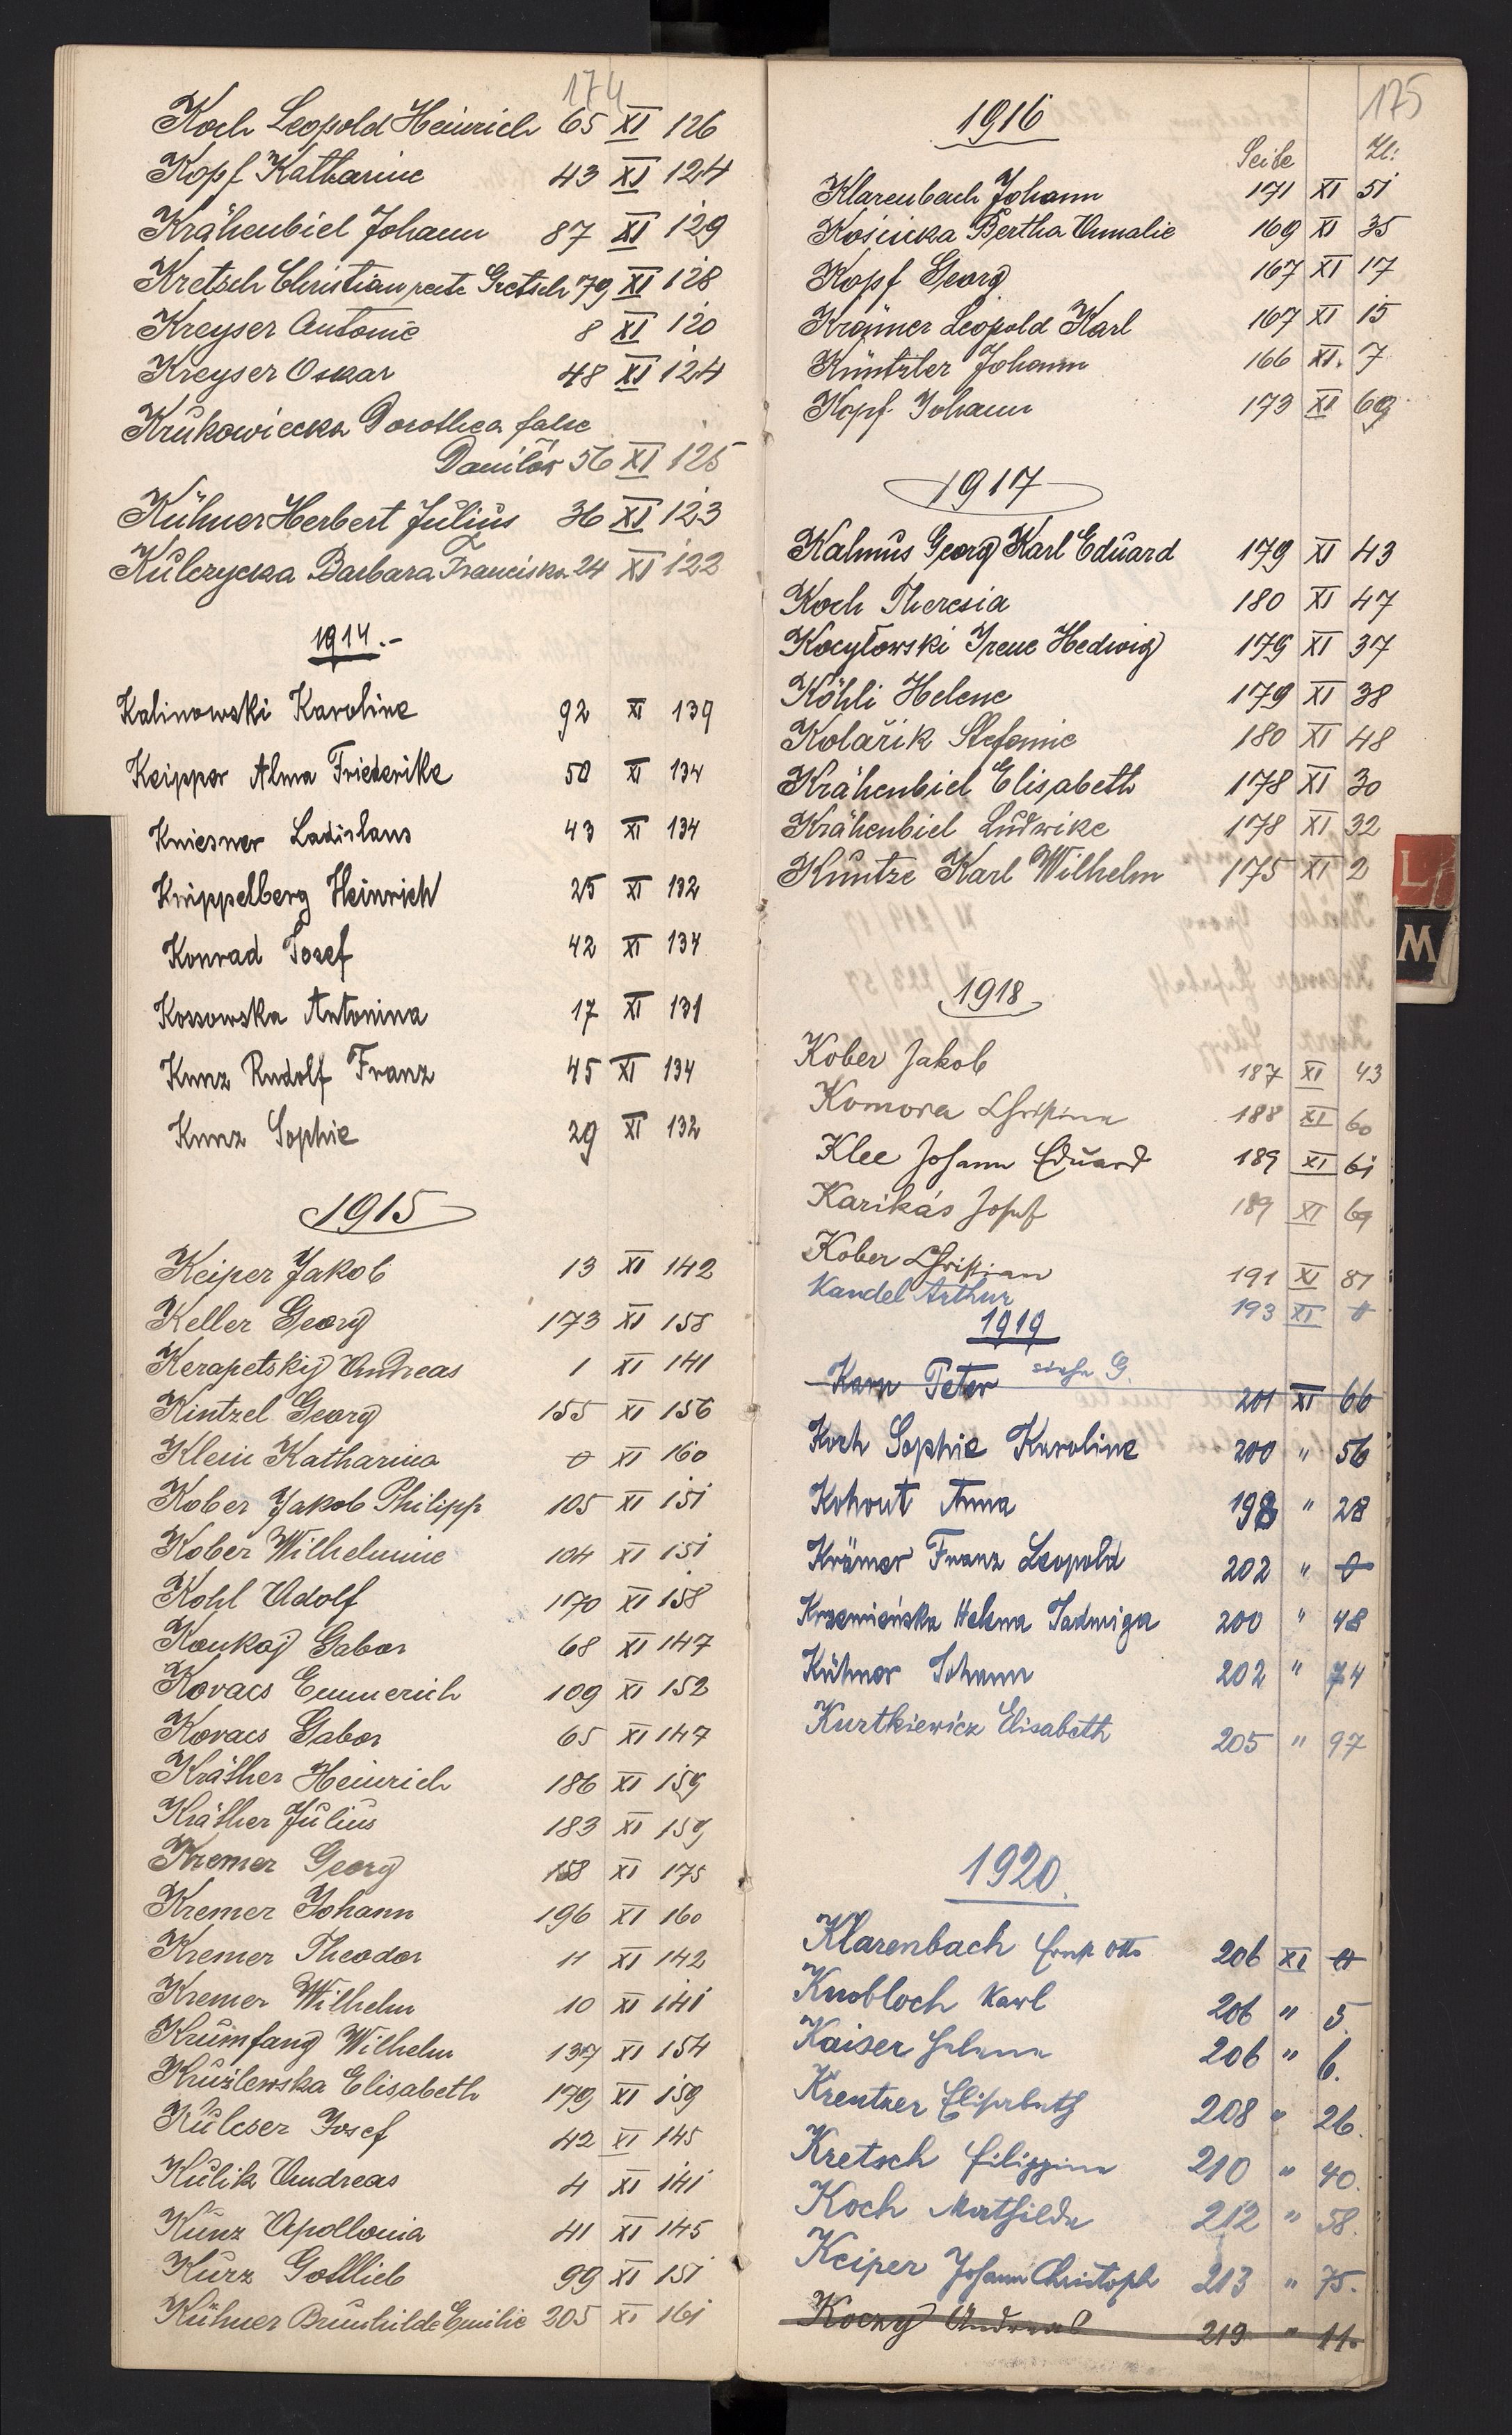 174
Koch Leopold Heinrich 65 XI 126
Kopf Katharine 43 XI 124
Krähenbiel Johann 87 XI 129
Kretsch Christian recte Gretsch 79 XI 128
Kreyser Antonie 8 XI 120
Kreyser Oskar 48 XI 124
Krukowiecka Dorothea false
Danilów 56 XI 125
Kühner Herbert Julius 36 XI 123
Kulczycka Barbara Franciska 24 XI 122
1914.-
Kalinowski Karoline 92 XI 139
Keipper Alma Friederike 50 XI 134
Kniesner Ladislaus 43 XI 134
Knippelberg Heinrich 25 XI 132
Konrad Josef 42 XI 134
Kossowska Antonina 17 XI 131
Kunz Rudolf Franz 45 XI 134
Kunz Sophie 29 XI 132
1915
Keiper Jakob 13 XI 142
Keller Georg 173 XI 158
Kerapetskij Andreas 1 XI 141
Kintzel Georg 155 XI 156
Klein Katharina 0 XI 160
Kober Jakob Philipp 105 XI 151
Kober Wilhelmine 104 XI 151
Kohl Adolf 170 XI 158
Koukoj Gabor 68 XI 147
Kovacs Emmerich 109 XI 152
Kovacs Gabor 65 XI 147
Kräther Heinrich 186 XI 159
Kräther Julius 183 XI 159
Kremer Georg 158 XI 175
Kremer Johann 196 XI 160
Kremer Theodor 11 XI 142
Kremer Wilhelm 10 XI 141
Krumfang Wilhelm 137 XI 154
Kruźlewska Elisabeth 179 XI 159
Kulcser Josef 42 XI 145
Kulik Andreas 4 XI 141
Kunz Apollonia 41 XI 145
Kurz Gottlieb 99 XI 151
Kühner Brunhilde Emilie 205 XI 161
175
1916
Seite Zl:
Klarenbach Johann 171 XI 51
Kosicicka Bertha Amalie 169 XI 35
Kopf Georg 167 XI 17
Krämer Leopold Karl 167 XI 15
Küntzler Johann 166 XI. 7
Kopf Johann 173 XI 69
1917
Kalmus Georg Karl Eduard 179 XI 43
Koch Theresia 180 XI 47
Kocyłowski Irene Hedwig 179 XI 37
Köhli Helene 179 XI 38
Kolařik Stefanie 180 XI 48
Krähenbiel Elisabeth 178 XI 30
Krähenbiel Ludwike 178 XI 32
Kuntze Karl Wilhelm 175 XI 2
L
M
1918
Kober Jakob 187 XI 43
Komora Christina 188 XI 60
Klee Johann Eduard 189 XI 61
Karikás Josef 189 XI 69
Kober Christian 191 XI 81
Kandel Arthur 193 XI 0
1919
Karp Peter siehe G. 201 XI 66
Koch Sophie Karoline 200 " 56
Kohout Anna 198 " 28
Krämer Franz Leopold 202 " 0
Krzemieńska Helena Jadwiga 200 " 48
Kühner Johann 202 " 74
Kurtkiewicz Elisabeth 205 " 97
1920.
Klarenbach Ernst Otto 206 XI 0
Knobloch Karl 206 " 5.
Kaiser Helene 206 " 6.
Kreutzer Elisabeth 208 " 26.
Kretsch Filippine 210 " 40.
Koch Mathilde 212 " 58.
Keiper Johann Christoph 213 " 75.
Koczy Andreas 219 " 11.